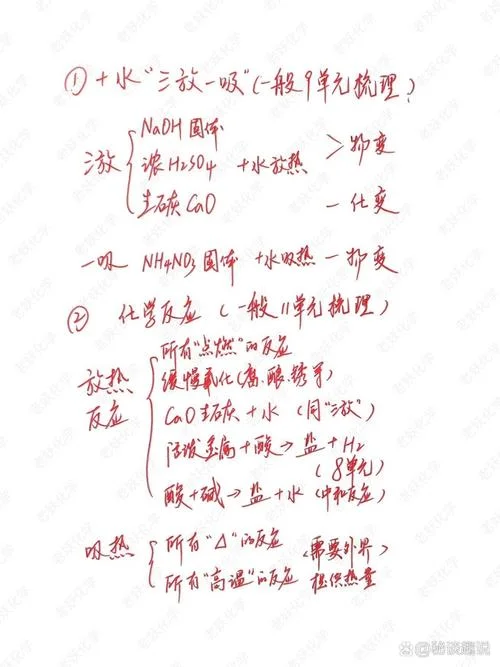 ① + 水 "三放一吸" (一般9单元梳理)
三放
NaOH 固体
浓H2SO4 + 水放热 > 物变
生石灰 CaO — 化变
一吸 NH4NO3 固体 + 水吸热 — 物变
② 化学反应 (一般11单元梳理)
放热反应
所有"点燃"的反应
缓慢氧化 (腐、酿、锈等)
CaO 生石灰 + 水 (同"三放")
活泼金属 + 酸 → 盐 + H2
(8单元)
酸 + 碱 → 盐 + 水 (中和反应)
吸热
所有"△"的反应 (需要外界
所有"高温"的反应 提供热量
老妖化学
秘谈趣说